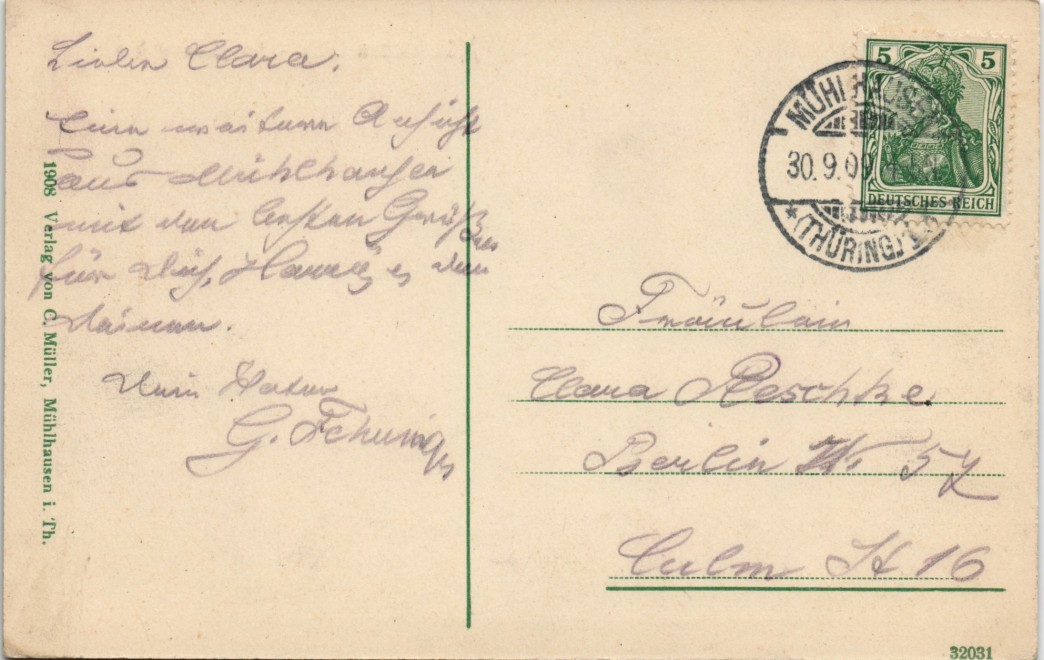 Lieber Clara.
Eine weitere Ansicht
aus Mühlhausen
mit den besten Grüßen
für Dich,
Deinen.
Dein Vater
G.
1908 Verlag von C. Müller, Mühlhausen i. Th.
5 5
DEUTSCHES REICH
MÜHLHAUSEN
30.9.09
* (THÜRING.)
Fräulein
Clara Reschke.
Berlin W. 57
Culm St 16
32031